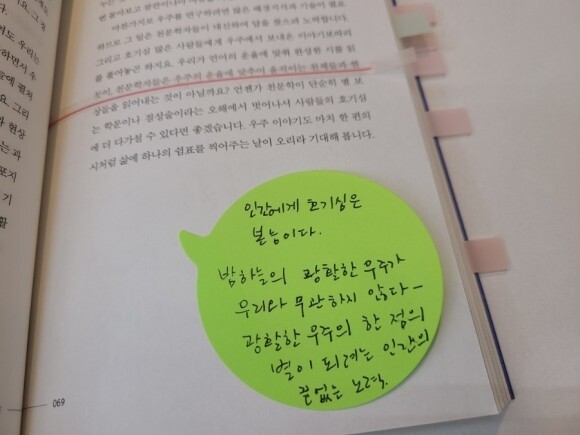 번 돌아보고
마찬가지로 우주를 연구하려면 많은 배경지식과 기술이 필요
하므로 그 일은 천문학자들이 대신하여 답을 찾으려 노력합니다.
그리고 호기심 많은 사람들에게 우주에서 보내온 이야기보따리
를 풀어놓곤 하지요. 우리가 언어의 운율에 맞춰 완성한 시를 읽
듯이, 천문학자들은 우주의 운율에 맞추어 움직이는 천체들과 현
상들을 읽어내는 것이 아닐까요? 언젠가 천문학이 단순히 별 보
는 학문이나 점성술이라는 오해에서 벗어나서 사람들의 호기심
에 더 다가설 수 있다면 좋겠습니다. 우주 이야기도 마치 한 편의
시처럼 삶에 하나의 쉼표를 찍어주는 날이 오리라 기대해 봅니다.
인간에게 호기심은
본능이다.
밤하늘의 광활한 우주가
우리와 무관하지 않다-
광활한 우주의 한 점의
별이 되려는 인간의
끝없는 노력.
069